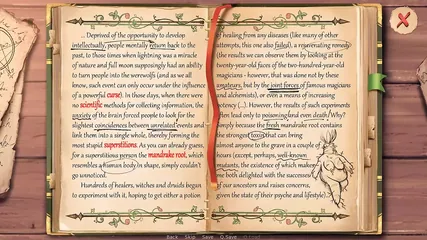 ... Deprived of the opportunity to develop
intellectually, people mentally return back to the
past, to those times when lightning was a miracle
of nature and full moon supposingly had an ability
to turn people into the werewolfs (and as we all
know, such event can only occur under the influence
of a powerful curse). In those days, when there were
no scientific methods for collecting information, the
anxiety of the brain forced people to look for the
slightest coincidences between unrelated events and
link them into a single whole, thereby forming the
most stupid superstitions. As you can already guess,
for a superstitious person the mandrake root, which
resembles a human body in shape, simply couldn't go
unnoticed.
Hundreds of healers, witches and druids began
to experiment with it, hoping to get either a potion
of healing from any diseases (like many of other
attempts, this one also failed), a rejuvenating remedy
(the results we can observe them by looking at the
twenty-year-old faces of the two-hundred-year-old
magicians - however, that was done not by these
amateurs, but by the joint forces of famous magicians
and alchemists), or even a means of increasing
potency (...). However, the results of such experiments
often lead only to poisoning and even death. Why?
Simply because the fresh mandrake root contains
the strongest toxin that can bring
almost anyone to the grave in a couple of
hours (except, perhaps, well-known
mutants, the existence of which makes
me both delighted with the successes
of our ancestors and raises concerns,
given the state of their psyche and lifestyle).
Back Skip Save Q.Save